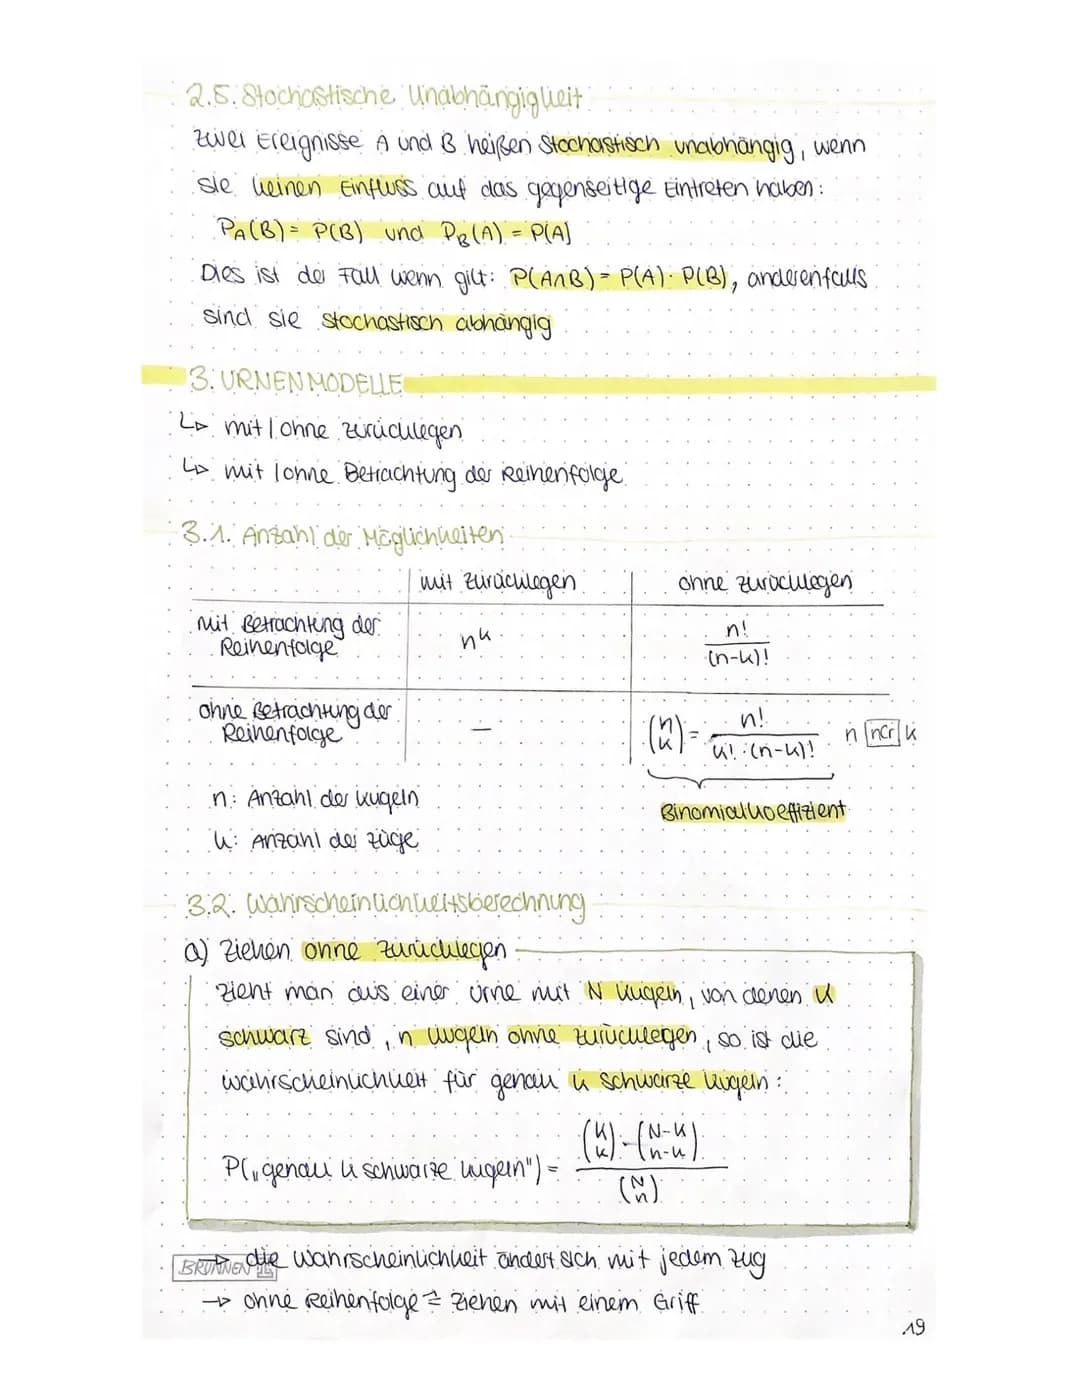 2.5. Stochastische Unabhängigkeit
Zwei Ereignisse A und B heißen stochastisch unabhängig, wenn
sie keinen Einfluss auf das gegenseitige Eintreten haben:
P_A(B) = P(B) und P_B(A) = P(A)
Dies ist der Fall wenn gilt: P(A∩B) = P(A) · P(B), anderenfalls
sind sie stochastisch abhängig
3. URNENMODELLE
↳ mit / ohne zurücklegen
↳ mit / ohne Betrachtung der Reihenfolge
3.1. Anzahl der Möglichkeiten
mit zurücklegen ohne zurücklegen
mit Betrachtung der Reihenfolge n^k n!/(n-k)!
ohne Betrachtung der Reihenfolge — (n über k) = n!/(k! · (n-k)!) n nCr k
Binomialkoeffizient
n: Anzahl der Kugeln
k: Anzahl der Züge
3.2. Wahrscheinlichkeitsberechnung
a) Ziehen ohne zurücklegen
Zieht man aus einer Urne mit N Kugeln, von denen K
schwarz sind, n Kugeln ohne zurücklegen, so ist die
Wahrscheinlichkeit für genau k schwarze Kugeln:
P(„genau k schwarze Kugeln") = (K über k) · (N-K über n-k) / (N über n)
→ die Wahrscheinlichkeit ändert sich mit jedem Zug
BRUNNEN
→ ohne Reihenfolge ≙ Ziehen mit einem Griff
19